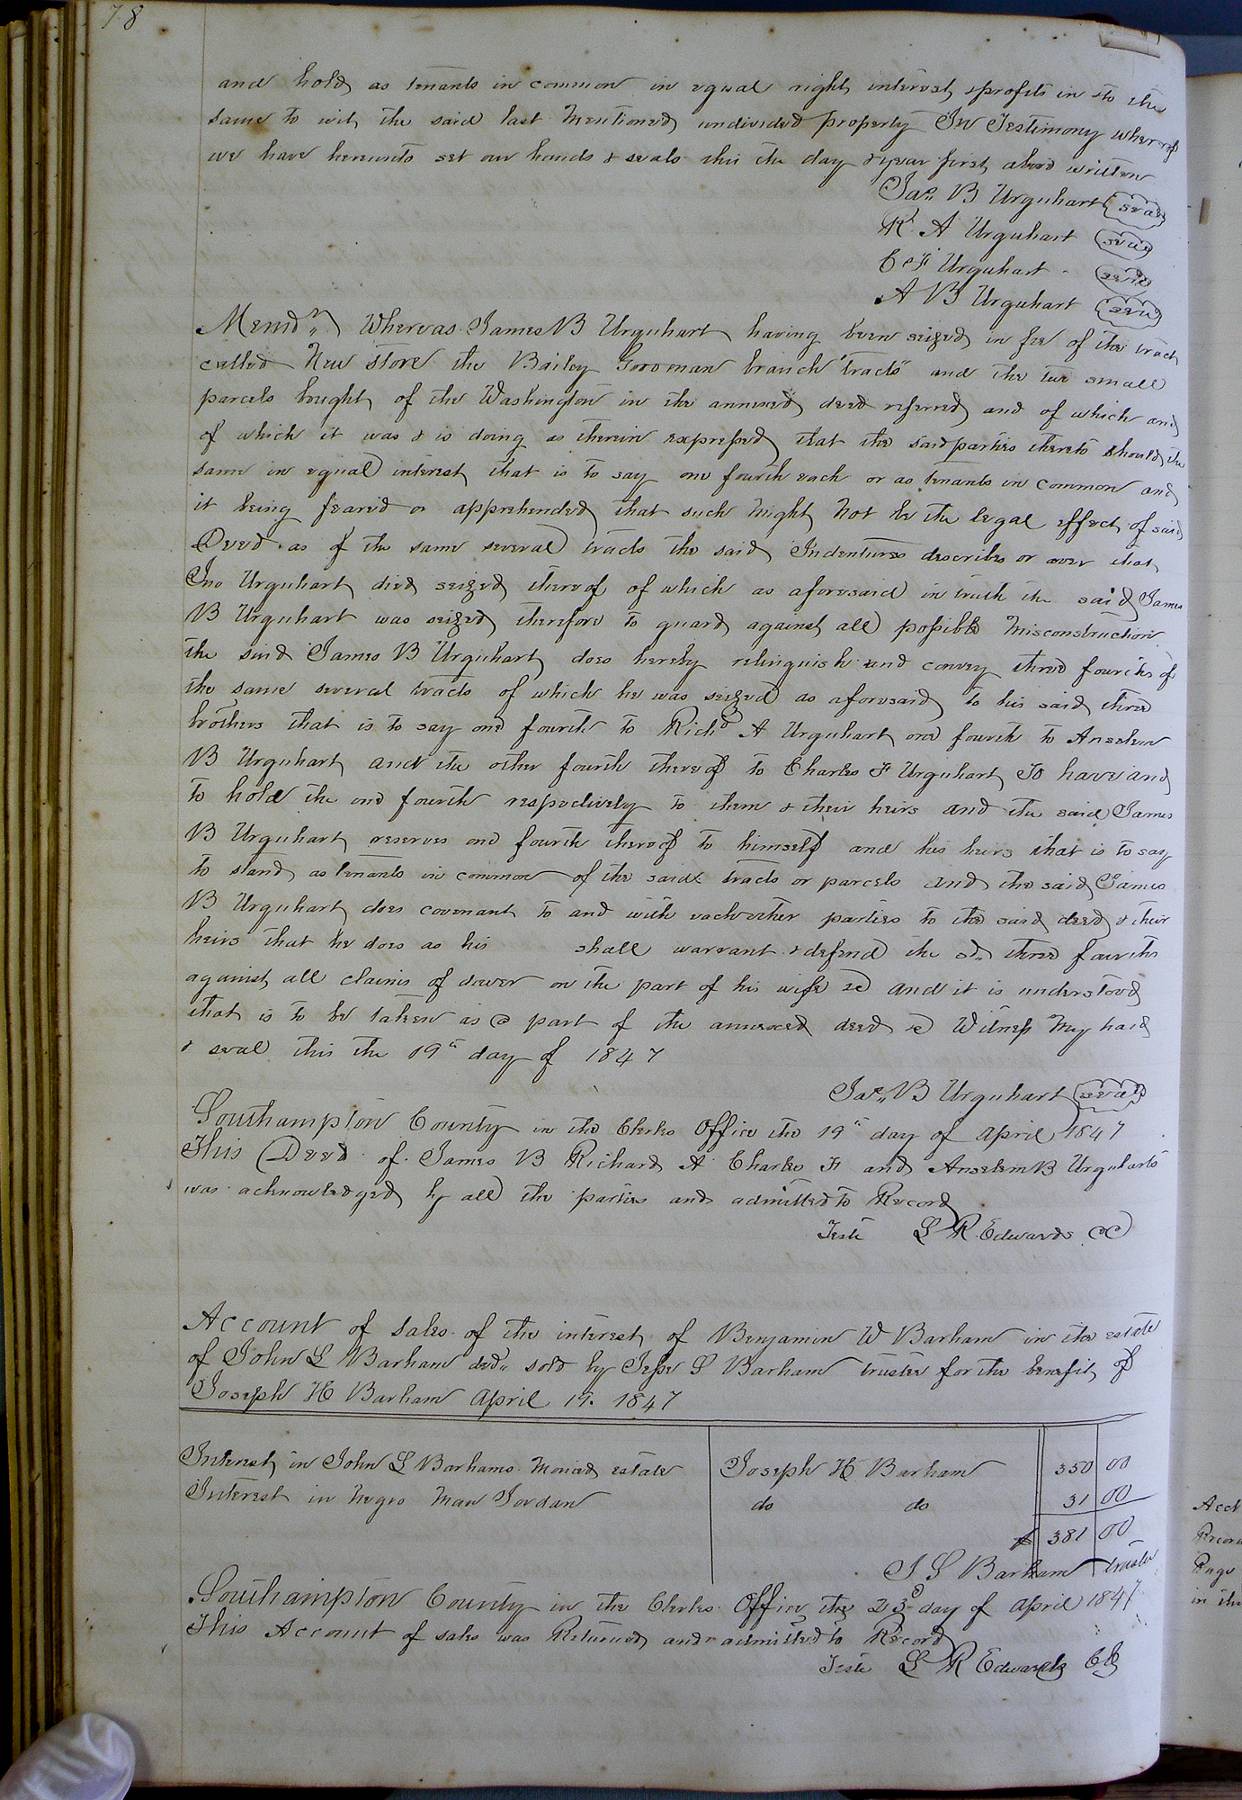 78
and hold as tenants in common in equal right interest & profits in & to the
same to wit, the said last mentioned undivided property In Testimony whereof
we have hereunto set our hands & seals this the day & year first above written
Jas. B Urquhart (seal)
R. A Urquhart (seal)
C. F Urquhart (seal)
A B Urquhart (seal)
Memdm. Whereas James B Urquhart having been seized in fee of the tract
called New Store the Bailey Gooman branch "tracts" and the two small
parcels bought of the Washington in the annexed deed referred and of which and
of which it was & is doing as therein expressed that the said parties thereto should the
same in equal interest that is to say one fourth each or as tenants in common and
it being feared or apprehended that such might not be the legal effect of said
Deed as of the same several tracts the said Indentures describes or over that
Jno Urquhart died seized thereof of which as aforesaid in truth the said James
B Urquhart was seized therefore to guard against all possible misconstruction
the said James B Urquhart does hereby relinquish and convey three fourths of
the same several tracts of which he was seized as aforesaid to his said three
brothers that is to say one fourth to Richd A Urquhart one fourth to Anselm
B Urquhart and the other fourth thereof to Charles F Urquhart To have and
to hold the one fourth respectively to them & their heirs and the said James
B Urquhart reserves one fourth thereof to himself and his heirs that is to say
to stand as tenants in common of the said tracts or parcels and the said James
B Urquhart does covenant to and with each other parties to the said deed & their
heirs that he does as his shall warrant & defend the sd. three fourths
against all claims of dower on the part of his wife &c and it is understood
that is to be taken as a part of the annexed deed &c Witness my hand
& seal this the 19th day of 1847
Jas. B Urquhart (seal)
Southampton County in the Clerks Office the 19th day of April 1847
This Deed of James B Richard A Charles F and Anselm B Urquharts
was acknowledged by all the parties and admitted to Record
Teste L R Edwards CC
Account of sales of the interest of Benjamin W Barham in the estate
of John L Barham decd. sold by Jesse S Barham trustee for the benefit of
Joseph H Barham April 19. 1847
Interest in John L Barhams Monied estate Joseph H Barham 350 00
Interest in Negro Man Jordan do do 31 00
$ 381 00
J S Barham trustee
Southampton County in the Clerks Office the 23d day of April 1847
This Account of sales was Returned and admitted to Record
Teste L R Edwards Clk
Acct
Record
Page
in the